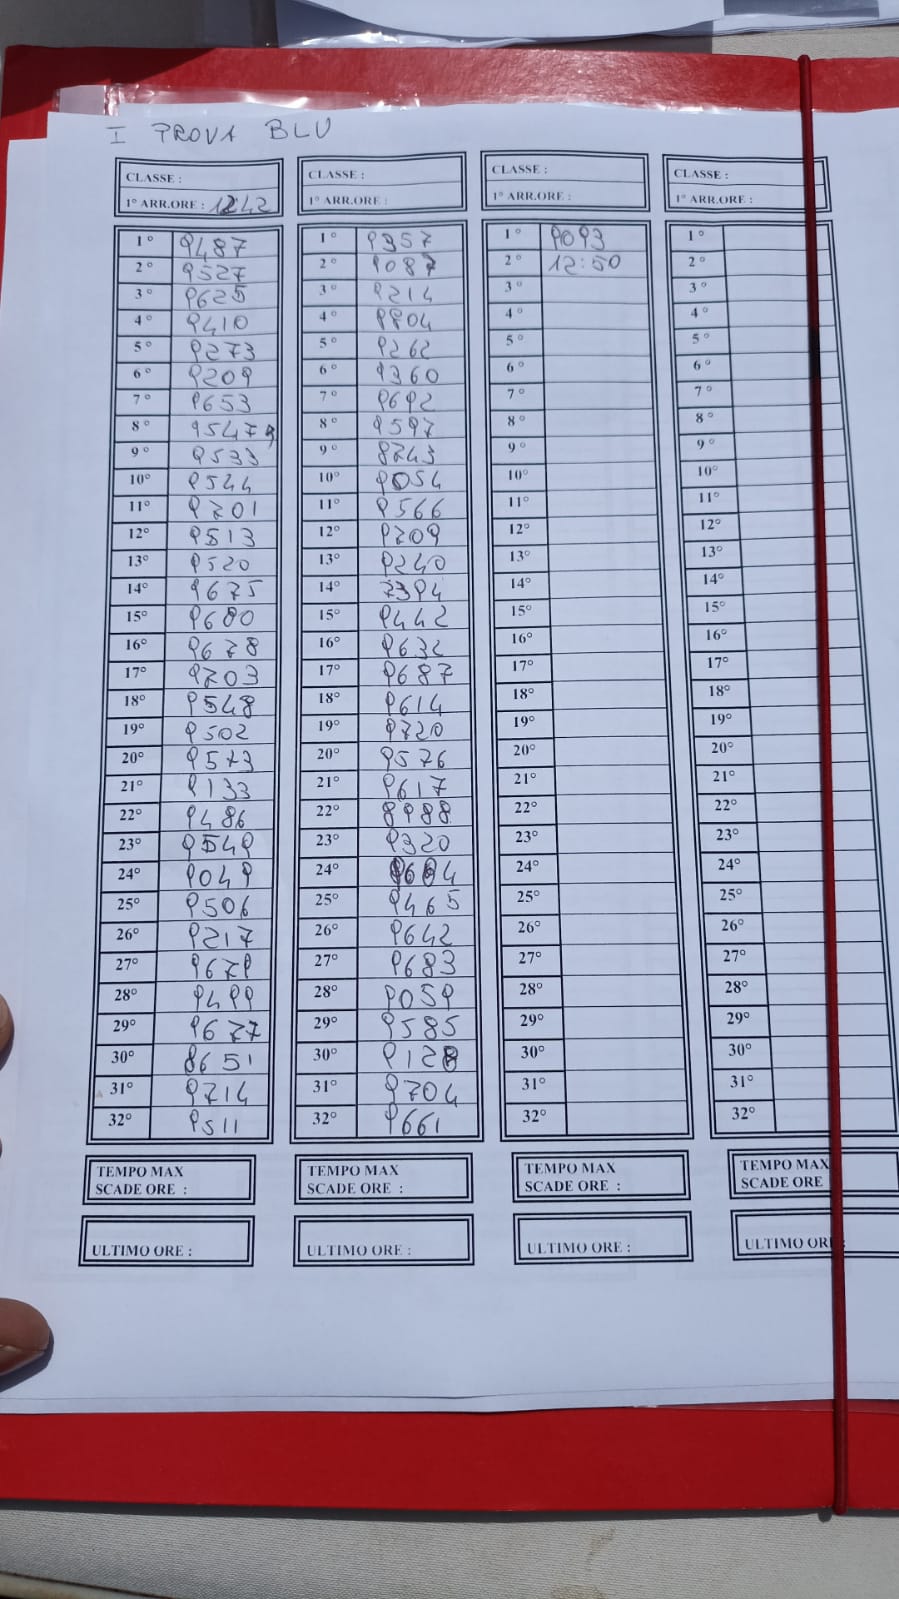 I PROVA BLU
CLASSE :
1° ARR.ORE : 1242
1° 9487
2° 9527
3° 9625
4° 9410
5° 9273
6° 9209
7° 9653
8° 9547
9° 9533
10° 9544
11° 9701
12° 9513
13° 9520
14° 9675
15° 9680
16° 9678
17° 9703
18° 9548
19° 9502
20° 9573
21° 9133
22° 9486
23° 9549
24° 9049
25° 9506
26° 9217
27° 9679
28° 9499
29° 9677
30° 8651
31° 9714
32° 9511
TEMPO MAX
SCADE ORE :
ULTIMO ORE :
CLASSE :
1° ARR.ORE :
1° 9357
2° 9087
3° 9214
4° 8804
5° 9262
6° 9360
7° 9692
8° 9597
9° 8743
10° 9054
11° 9566
12° 9709
13° 9240
14° 7394
15° 9442
16° 9632
17° 9687
18° 9614
19° 9720
20° 9576
21° 9617
22° 8988
23° 9320
24°
25° 9465
26° 9642
27° 9683
28° 9059
29° 9585
30° 9128
31° 9704
32° 9661
TEMPO MAX
SCADE ORE :
ULTIMO ORE :
CLASSE :
1° ARR.ORE :
1° 9093
2° 12:50
3°
4°
5°
6°
7°
8°
9°
10°
11°
12°
13°
14°
15°
16°
17°
18°
19°
20°
21°
22°
23°
24°
25°
26°
27°
28°
29°
30°
31°
32°
TEMPO MAX
SCADE ORE :
ULTIMO ORE :
CLASSE :
1° ARR.ORE :
1°
2°
3°
4°
5°
6°
7°
8°
9°
10°
11°
12°
13°
14°
15°
16°
17°
18°
19°
20°
21°
22°
23°
24°
25°
26°
27°
28°
29°
30°
31°
32°
TEMPO MAX
SCADE ORE
ULTIMO ORE: